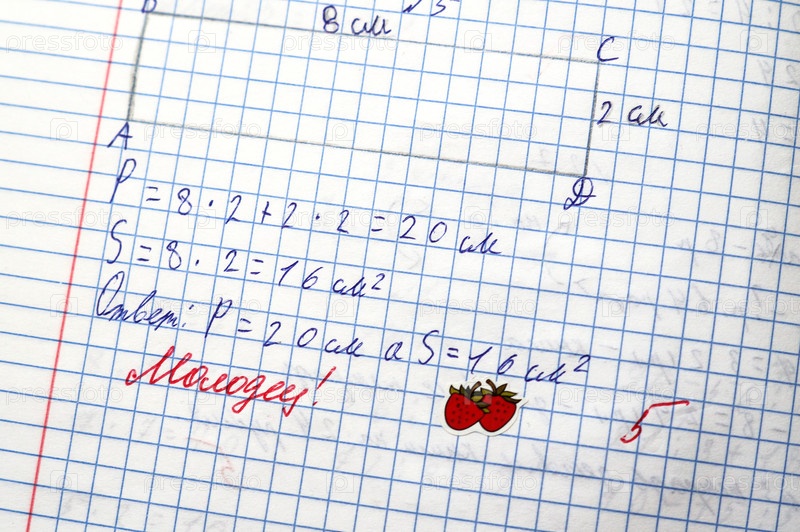 B
8 см
№5
C
2 см
A
D
P = 8 · 2 + 2 · 2 = 20 см
S = 8 · 2 = 16 см²
Ответ: P = 20 см а S = 16 см²
Молодец!
5